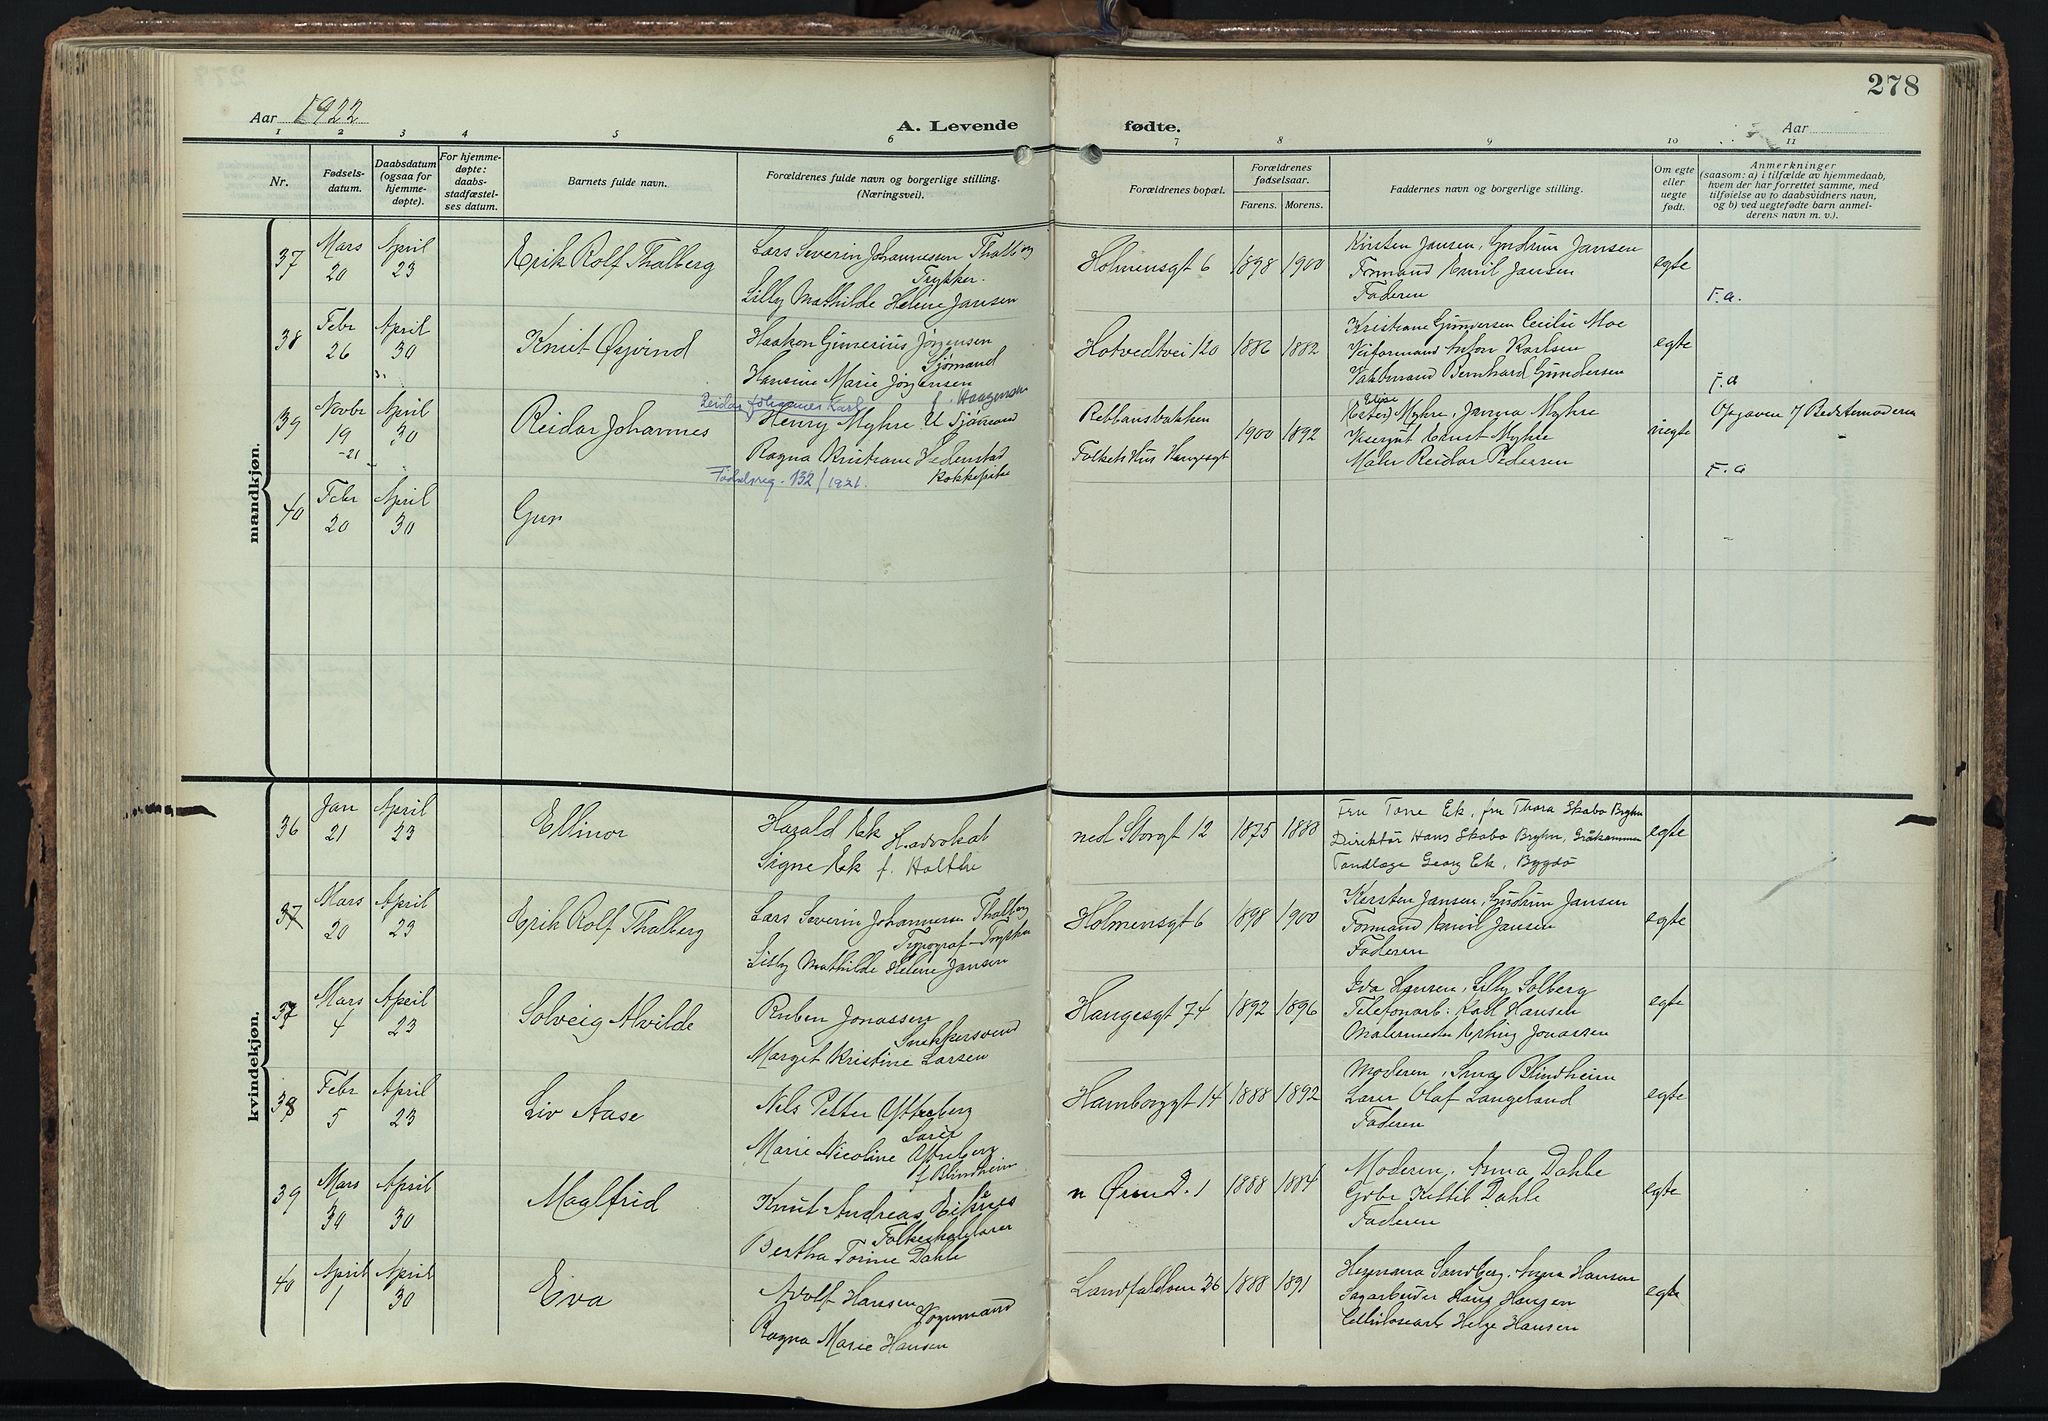 278
Aar 1922
A. Levende fødte.
Aar
1 2 3 4 5 6 7 8 9 10 11
Nr.
Fødselsdatum.
Daabsdatum (ogsaa for hjemmedøpte).
For hjemmedøpte: daabsstadfæstelses datum.
Barnets fulde navn.
Forældrenes fulde navn og borgerlige stilling. (Næringsvei).
Forældrenes bopæl.
Forældrenes fødselsaar.
Farens. Morens.
Faddernes navn og borgerlige stilling.
Om egte eller uegte født.
Anmerkninger (saasom: a) i tilfælde av hjemmedaab, hvem der har forrettet samme, med tilføielse av to daabsvidners navn, og b) ved uegtefødte barn anmelderens navn m. v.).
mandkjøn.
37 Mars 20 April 23 Erik Rolf Thalberg
Lars Severin Johannesen Thalberg
Trykker.
Lilly Mathilde Helene Jansen
Holmensgt 6 1898 1900
Kirsten Jansen, Gudrun Jansen
Formand Emil Jansen
Faderen
egte
F.a.
38 Febr 26 April 30 Knut Øyvind
Haakon Gunerius Jørgensen
Sjømand
Hansine Marie Jørgensen
f. Haagensen
Hotvedtvei 120 1886 1882
Kristiane Gundersen Cecilie Moe
Veiformand Anton Karlsen
Valsmand Bernhard Gundersen
egte
F.a
39 Novbr 19 -21 April 30 Reidar Johannes
Reidar Johannes Karl
Henry Myhre U Sjømand
Ragna Kristiane Hedenstad
Kokkepike
Fødselsreg. 132/1921.
Rebbansbakken
Folkets Hus Haugesgt
1900 1892
Elise
(Ester) Myhre, Janna Myhre
Visergut Ernst Myhre
Maler Reidar Pedersen
uegte
Opgaven af Bedstemoderen
F.a
40 Febr 20 April 30 Gun
kvindekjøn.
36 Jan 21 April 23 Ellinor
Harald Ek
H. advokat
Signe Ek f. Holthe
ned Storgt 12 1875 1888
Fru Tone Ek, fru Thora Skabo Bryhn
Direktør Hans Skabo Bryhn, Gråkammen
Tandlæge Georg Ek, Bygdø
egte
37 Mars 20 April 23 Erik Rolf Thalberg
Lars Severin Johannesen Thalberg
Typograf-Trykker
Lilly Mathilde Helene Jansen
Holmensgt 6 1898 1900
Kersten Jansen, Gudrun Jansen
Formand Emil Jansen
Faderen
egte
37 Mars 4 April 23 Solveig Alvilde
Ruben Jonassen
Snekkersvend
Margit Kristine Larsen
Haugesgt 74 1892 1896
Eva Hansen, Lilly Solberg
Telefonarb: Karl Hansen
Malermester Erling Jonassen
egte
38 Febr 5 April 23 Liv Aase
Nels Petter Ytterberg
Lærer
Marie Nicoline Ytterberg
f Blindheim
Hamborggt 14 1888 1892
Moderen, Inna Blindheim
Lærer Olaf Langeland
Faderen
egte
39 Mars 30 April 30 Maalfrid
Knut Andreas Eiknes
Folkeskolelærer
Bertha Torine Dahle
n Øren D. 1 1888 1884
Moderen, Anna Dahle
Gbr Kittil Dahle
Faderen
egte
40 April 1 April 30 Eva
Adolf Hansen
Vognmand
Ragna Marie Hansen
Landfaldøen 36 1888 1891
Hermana Sandberg, Anna Hansen
Sagarbeider Hans Hansen
Cellulosearb Helge Hansen
egte